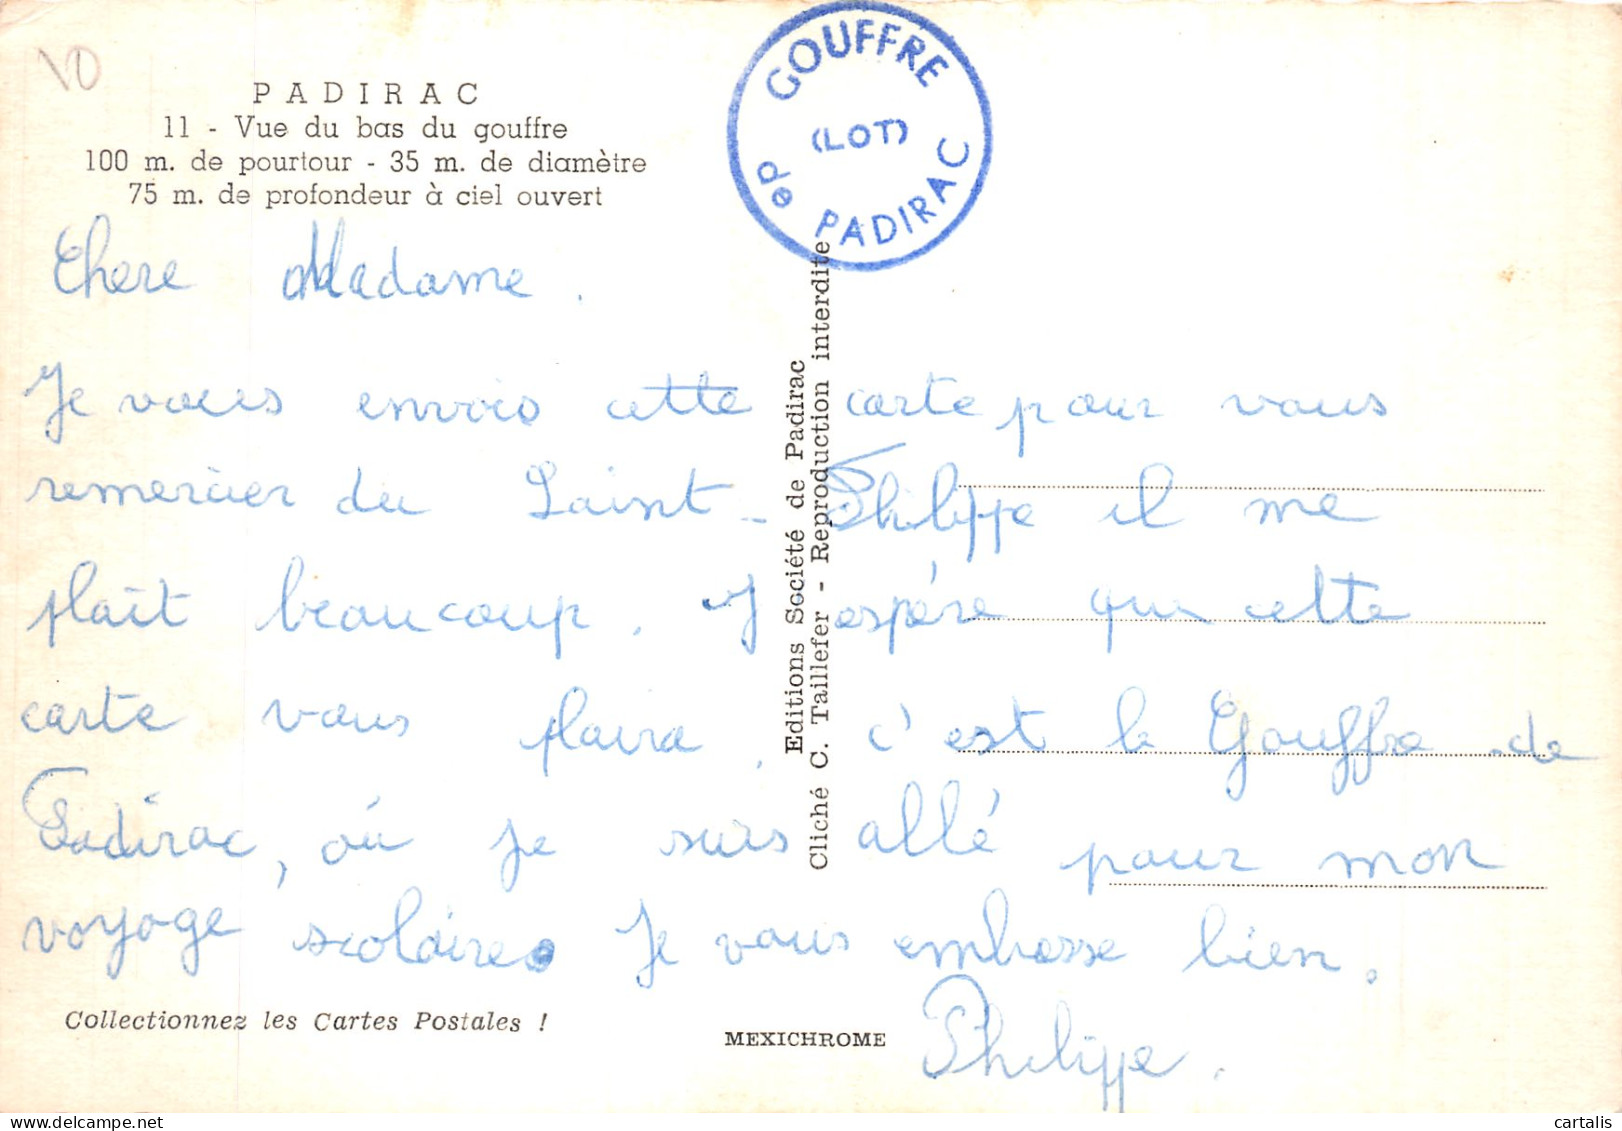 10
PADIRAC
11 - Vue du bas du gouffre
100 m. de pourtour - 35 m. de diamètre
75 m. de profondeur à ciel ouvert
GOUFFRE
(LOT)
de PADIRAC
Chere Madame.
Je vous envois cette carte pour vous
remercier du Saint - Philippe il me
plaît beaucoup. J'espére que cette
carte vous plaira. c'est le Gouffre de
Padirac, où je suis allé pour mon
voyage scolaire. Je vous embrasse bien.
Philippe.
Editions Société de Padirac
Cliché C. Taillefer - Reproduction interdite
Collectionnez les Cartes Postales !
MEXICHROME
cartalis